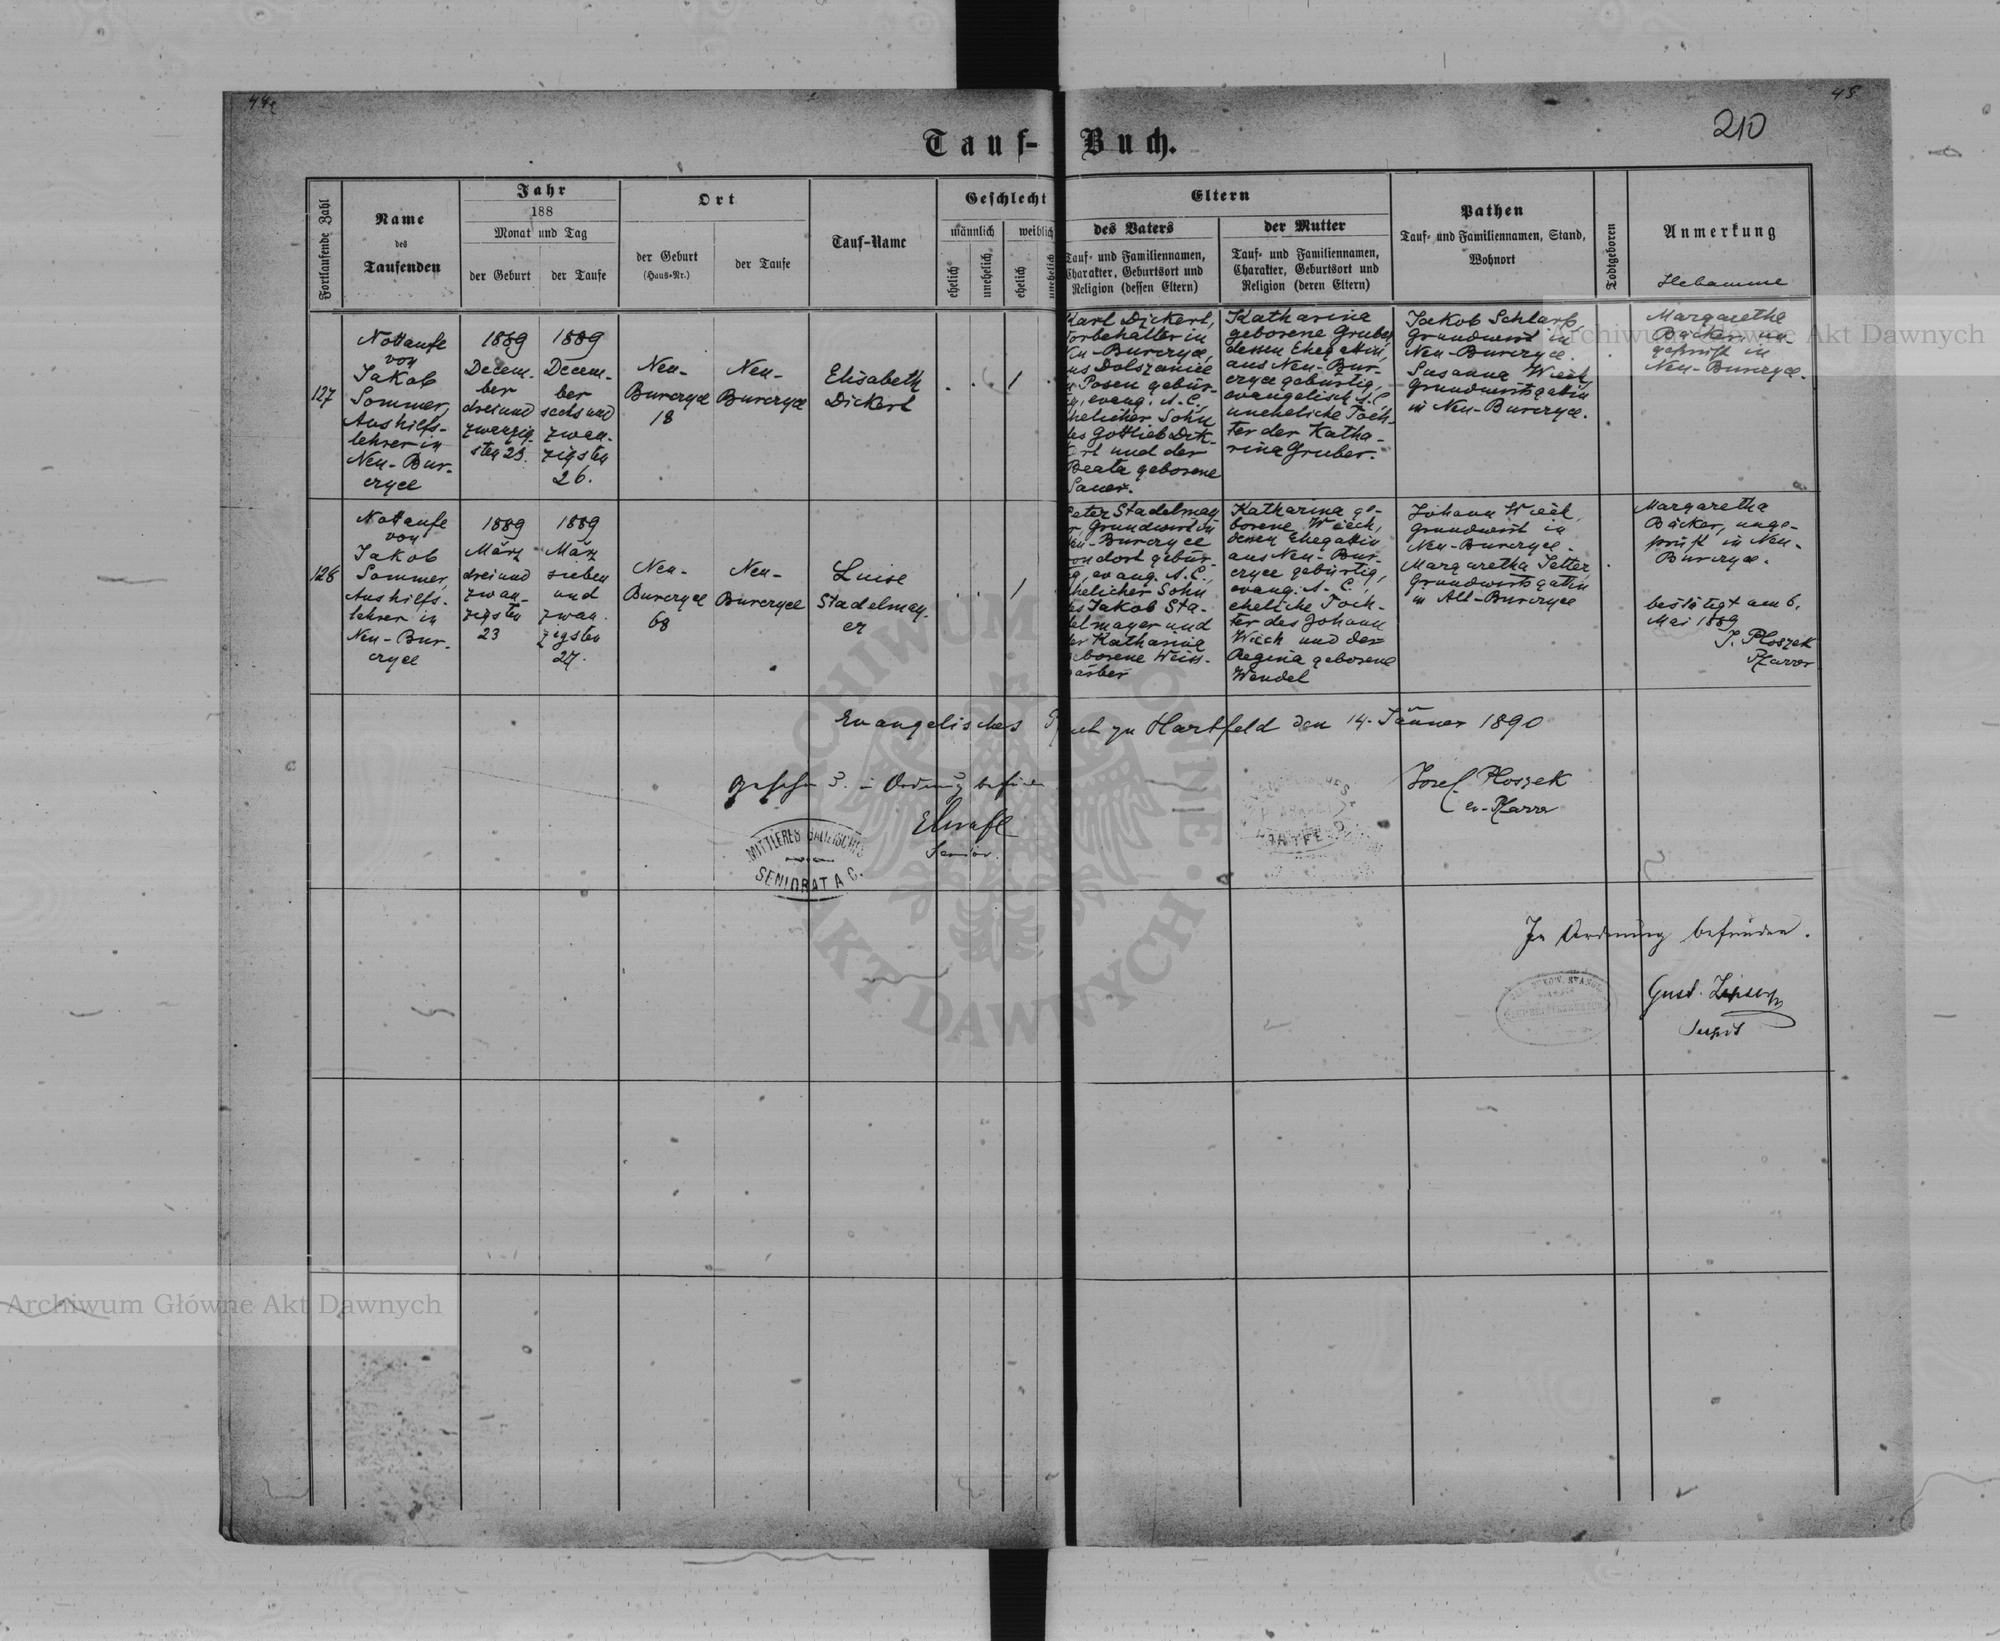 44
45
210
Tauf- Buch.
Fortlaufende Zahl
Name
des
Taufenden
Jahr
188
Monat und Tag
der Geburt
der Taufe
Ort
der Geburt
(Haus-Nr.)
der Taufe
Tauf-Name
Geschlecht
männlich
weiblich
ehelich
unehelich
ehelich
unehelich
Eltern
des Vaters
Tauf- und Familiennamen,
Charakter, Geburtsort und
Religion (dessen Eltern)
der Mutter
Tauf- und Familiennamen,
Charakter, Geburtsort und
Religion (deren Eltern)
Pathen
Tauf- und Familiennamen, Stand,
Wohnort
Todtgeboren
Anmerkung
Hebamme
127
Nottaufe
von
Jakob
Sommer,
Aushilfs-
lehrer in
Neu-Bur-
czyce
1889
Decem-
ber
drei und
zwanzig-
sten 23.
1889
Decem-
ber
sechs und
zwan-
zigsten
26.
Neu-
Burczyce
18
Neu-
Burczyce
Elisabeth
Dickert
1
Karl Dickert,
Vorbehälter in
Neu-Burczyce,
aus Dolszaniec
in Posen gebür-
tig, evang. A.C.,
ehelicher Sohn
des Gottlieb Dik-
kert und der
Beata geborene
Sauer.
Katharina
geborene Gruber,
dessen Ehegattin,
aus Neu-Bur-
czyce gebürtig,
evangelisch A.C.,
uneheliche Toch-
ter der Katha-
rina Gruber.
Jakob Schlarb,
Grundwirt in
Neu-Burczyce.
Susanna Wiech,
Grundwirtsgattin
in Neu-Burczyce.
Margaretha
Bäcker, un-
geprüft in
Neu-Burczyce.
128
Nottaufe
von
Jakob
Sommer,
Aushilfs-
lehrer in
Neu-Bur-
czyce
1889
März
drei und
zwan-
zigsten
23
1889
März
sieben
und
zwan-
zigsten
27.
Neu-
Burczyce
68
Neu-
Burczyce
Luise
Stadelmay-
er
1
Peter Stadelmay-
er, Grundwirt in
Neu-Burczyce
von dort gebür-
tig, evang. A.C.,
ehelicher Sohn
des Jakob Sta-
delmayer und
der Katharina
geborene Weis-
gärber
Katharina ge-
borene Wiech,
dessen Ehegattin
aus Neu-Bur-
czyce gebürtig,
evang. A.C.,
eheliche Toch-
ter des Johann
Wiech und der
Regina geborene
Wendel
Johann Wiech,
Grundwirt in
Neu-Burczyce.
Margaretha Jetter,
Grundwirtsgattin
in Alt-Burczyce
Margaretha
Bäcker, unge-
prüft in Neu-
Burczyce.
bestätigt am 6.
Mai 1889
J. Ploszek
Pfarrer
Evangelisches Pfarramt zu Hartfeld den 14. Jänner 1890
Josef Ploszek
ev. Pfarrer
Senior.
MITTLERES GALIZISCHES
SENIORAT A.C.
HARTFELD
In Ordnung befunden.
Gust.
Archiwum Główne Akt Dawnych
Archiwum Główne Akt Dawnych
ARCHIWUM GŁÓWNE
AKT DAWNYCH